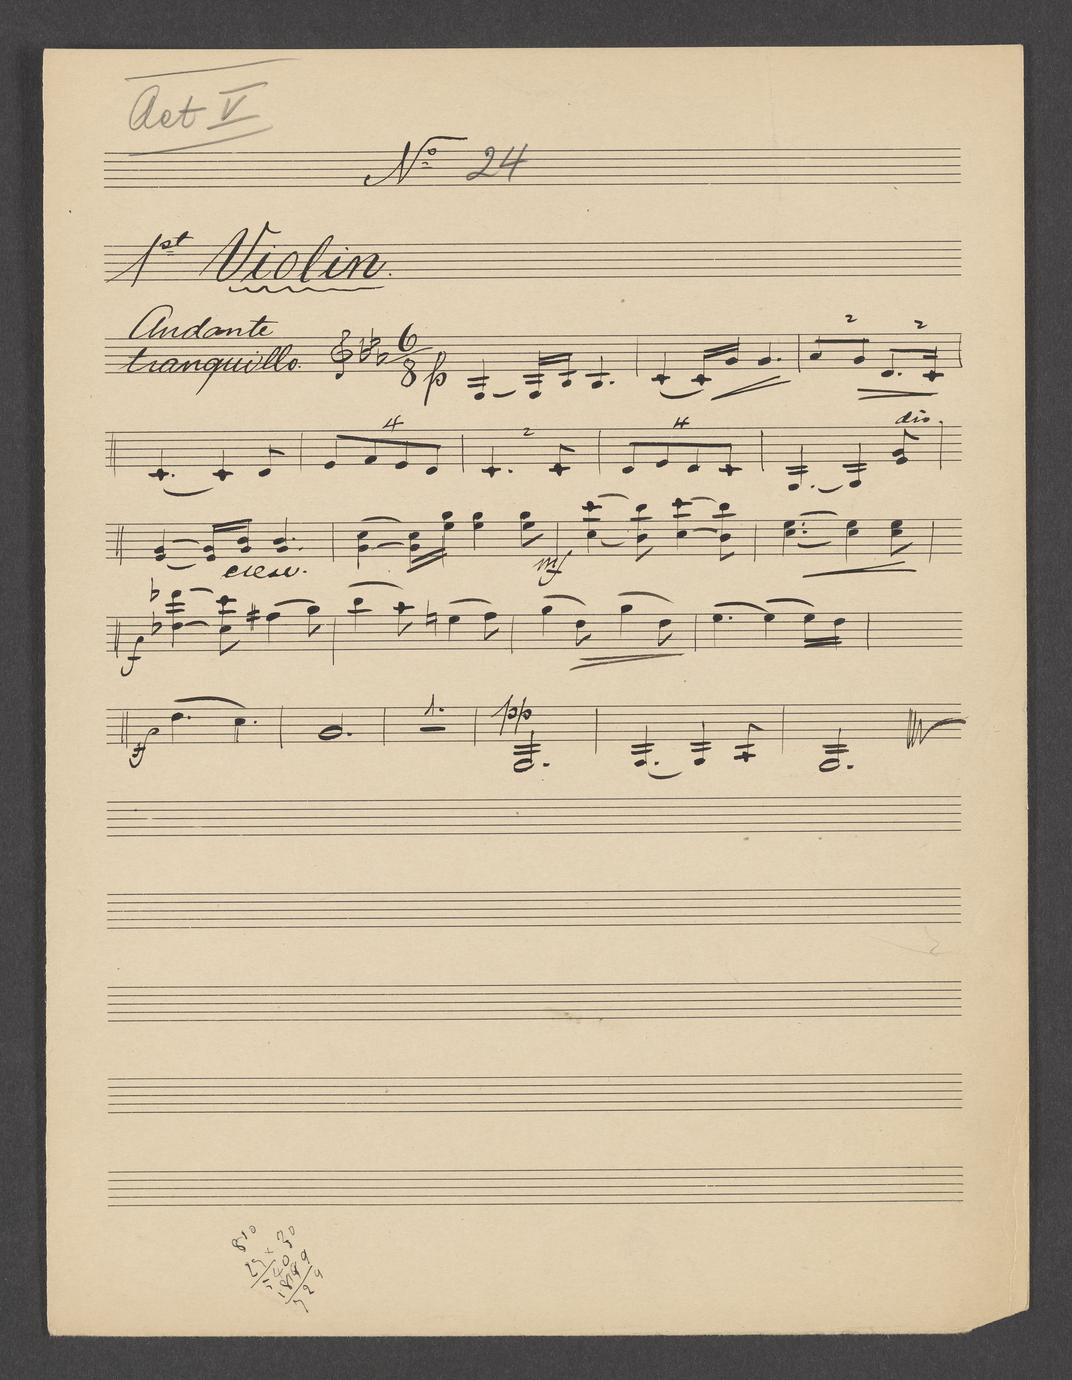 Act V
No 24
1st Violin.
Andante
tranquillo.
6
8 p
2 2
4 2 4 div.
cresc. mf
f
f 1. pp